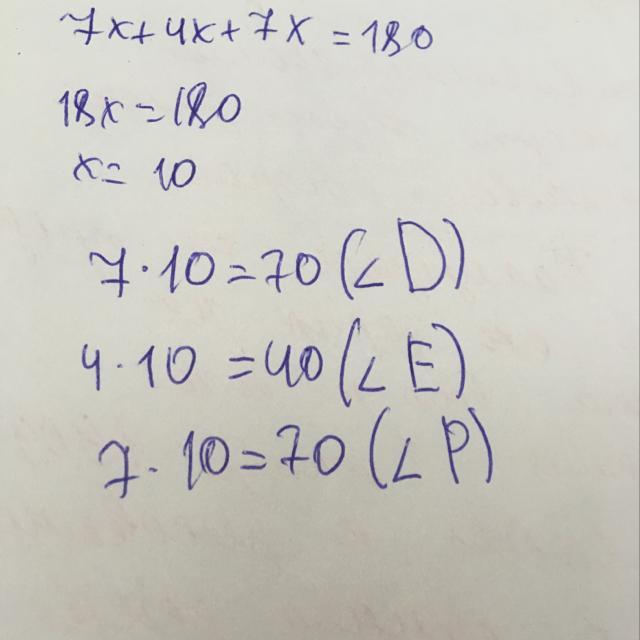 7x+4x+7x=180
18x=180
x=10
7·10=70(∠D)
4·10=40(∠E)
7·10=70(∠P)